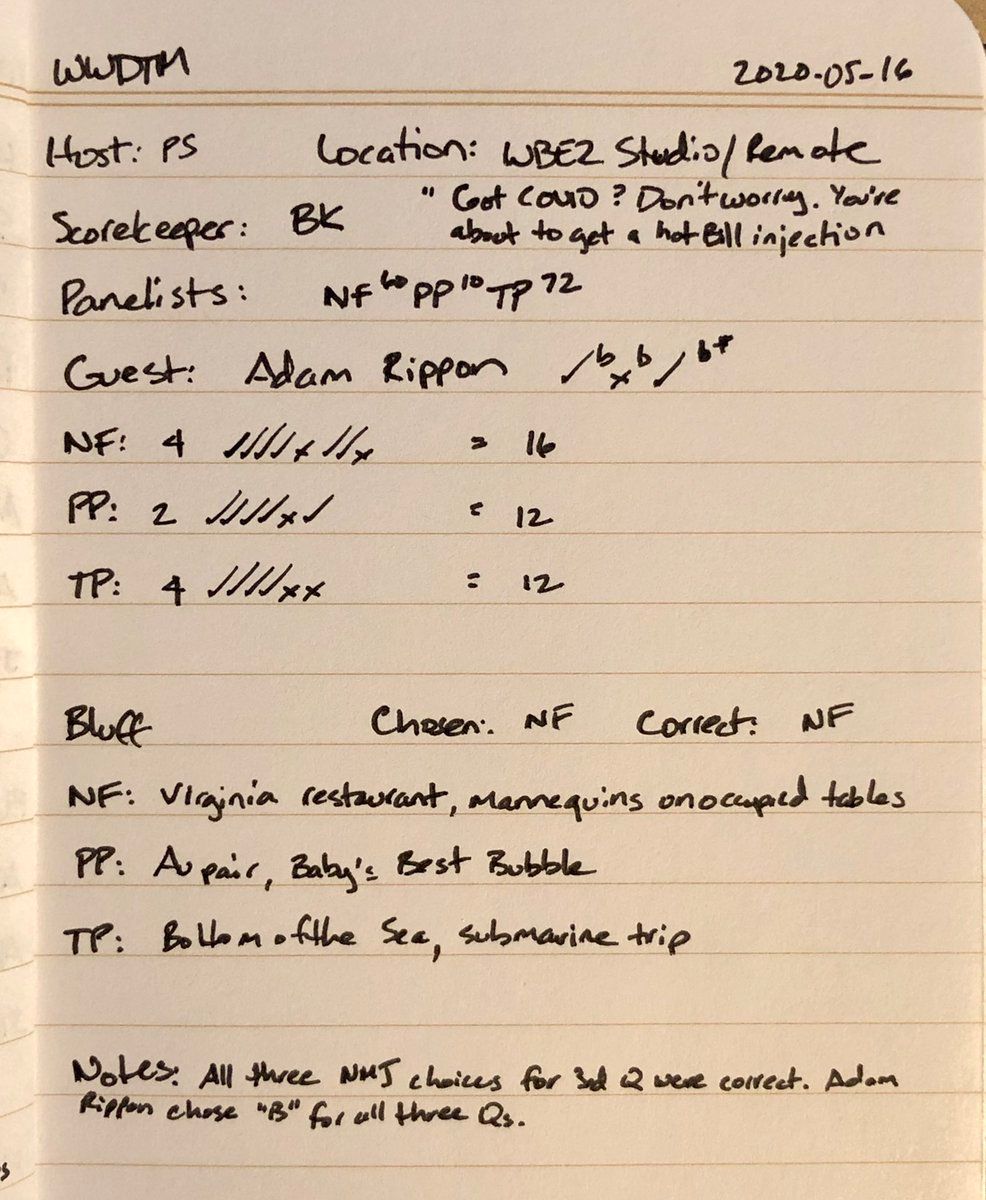 WWDTM 2020-05-16
Host: PS Location: WBEZ Studio/Remote
Scorekeeper: BK "Got COVID? Don't worry. You're
about to get a hot Bill injection
Panelists: NF 60 PP 10 TP 72
Guest: Adam Rippon ✓b xb ✓b*
NF: 4 ✓✓✓✓x✓✓x = 16
PP: 2 ✓✓✓✓x✓ = 12
TP: 4 ✓✓✓✓xx = 12
Bluff Chosen: NF Correct: NF
NF: Virginia restaurant, mannequins on occupied tables
PP: Au pair, Baby's Best Bubble
TP: Bottom of the Sea, submarine trip
Notes: All three NMJ choices for 3rd Q were correct. Adam
Rippon chose "B" for all three Qs.